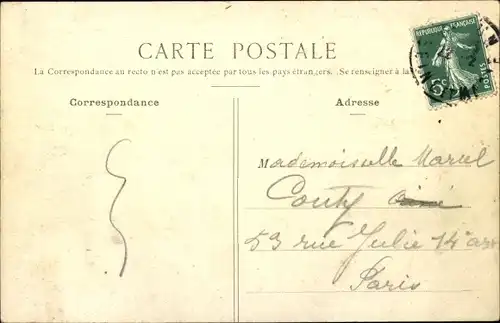 CARTE POSTALE
La Correspondance au recto n'est pas acceptée par tous les pays étrangers. (Se renseigner à la
Correspondance
Adresse
REPUBLIQUE FRANÇAISE
5c
POSTES
Mademoiselle Marcel
Couty
53 rue Julie 14 arr
Paris